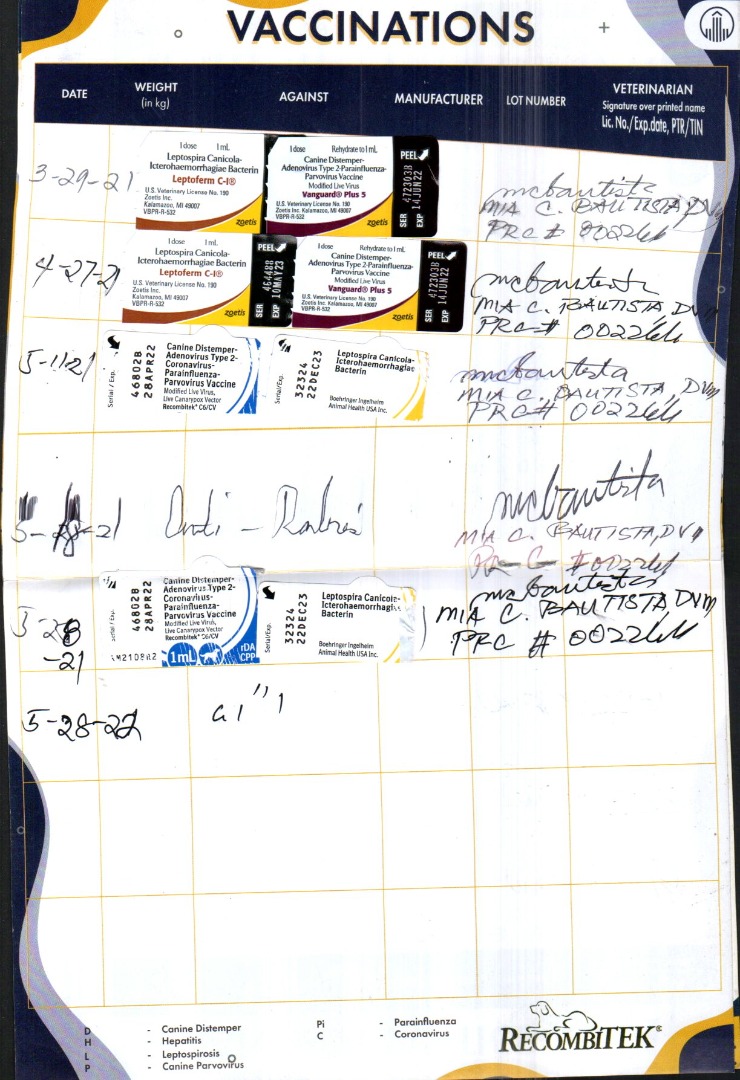 VACCINATIONS
DATE
WEIGHT
(in kg)
AGAINST
MANUFACTURER
LOT NUMBER
VETERINARIAN
Signature over printed name
Lic. No./Exp.date, PTR/TIN
3-29-21
1 dose 1 mL
Leptospira Canicola-
Icterohaemorrhagiae Bacterin
Leptoferm C-I®
U.S. Veterinary License No. 190
Zoetis Inc.
Kalamazoo, MI 49007
VBPR-R-532
zoetis
1 dose Rehydrate to 1 mL
Canine Distemper-
Adenovirus Type 2-Parainfluenza-
Parvovirus Vaccine
Modified Live Virus
Vanguard® Plus 5
U.S. Veterinary License No. 190
Zoetis Inc. Kalamazoo, MI 49007
VBPR-R-532
zoetis
PEEL
SER 472303B
EXP 14JUN22
mcbautista
MIA C. BAUTISTA, DVM
PRC # 002264
4-27-21
1 dose 1 mL
Leptospira Canicola-
Icterohaemorrhagiae Bacterin
Leptoferm C-I®
U.S. Veterinary License No. 190
Zoetis Inc.
Kalamazoo, MI 49007
VBPR-R-532
zoetis
PEEL
SER 464488
EXP 10MAY23
1 dose Rehydrate to 1 mL
Canine Distemper-
Adenovirus Type 2-Parainfluenza-
Parvovirus Vaccine
Modified Live Virus
Vanguard® Plus 5
U.S. Veterinary License No. 190
Zoetis Inc. Kalamazoo, MI 49007
VBPR-R-532
zoetis
PEEL
SER 472303B
EXP 14JUN22
MIA C. BAUTISTA, DVM
PRC # 002264
5-11-21
Serial/Exp.
46802B
28APR22
Canine Distemper-
Adenovirus Type 2-
Coronavirus-
Parainfluenza-
Parvovirus Vaccine
Modified Live Virus,
Live Canarypox Vector
Recombitek® C6/CV
Serial/Exp.
32324
22DEC23
Leptospira Canicola-
Icterohaemorrhagiae
Bacterin
Boehringer Ingelheim
Animal Health USA Inc.
mcbautista
MIA C. BAUTISTA, DVM
PRC # 002264
5-28-21
Anti - Rabies
mcbautista
MIA C. BAUTISTA, DVM
PRC #002264
5-28
-21
Serial/Exp.
46802B
28APR22
Canine Distemper-
Adenovirus Type 2-
Coronavirus-
Parainfluenza-
Parvovirus Vaccine
Modified Live Virus,
Live Canarypox Vector
Recombitek® C6/CV
1mL
Serial/Exp.
32324
22DEC23
Leptospira Canicola-
Icterohaemorrhagiae
Bacterin
Boehringer Ingelheim
Animal Health USA Inc.
mcbautista
MIA C. BAUTISTA, DVM
PRC # 002264
5-28-22
D - Canine Distemper
H - Hepatitis
L - Leptospirosis
P - Canine Parvovirus
Pi - Parainfluenza
C - Coronavirus
RECOMBITEK®